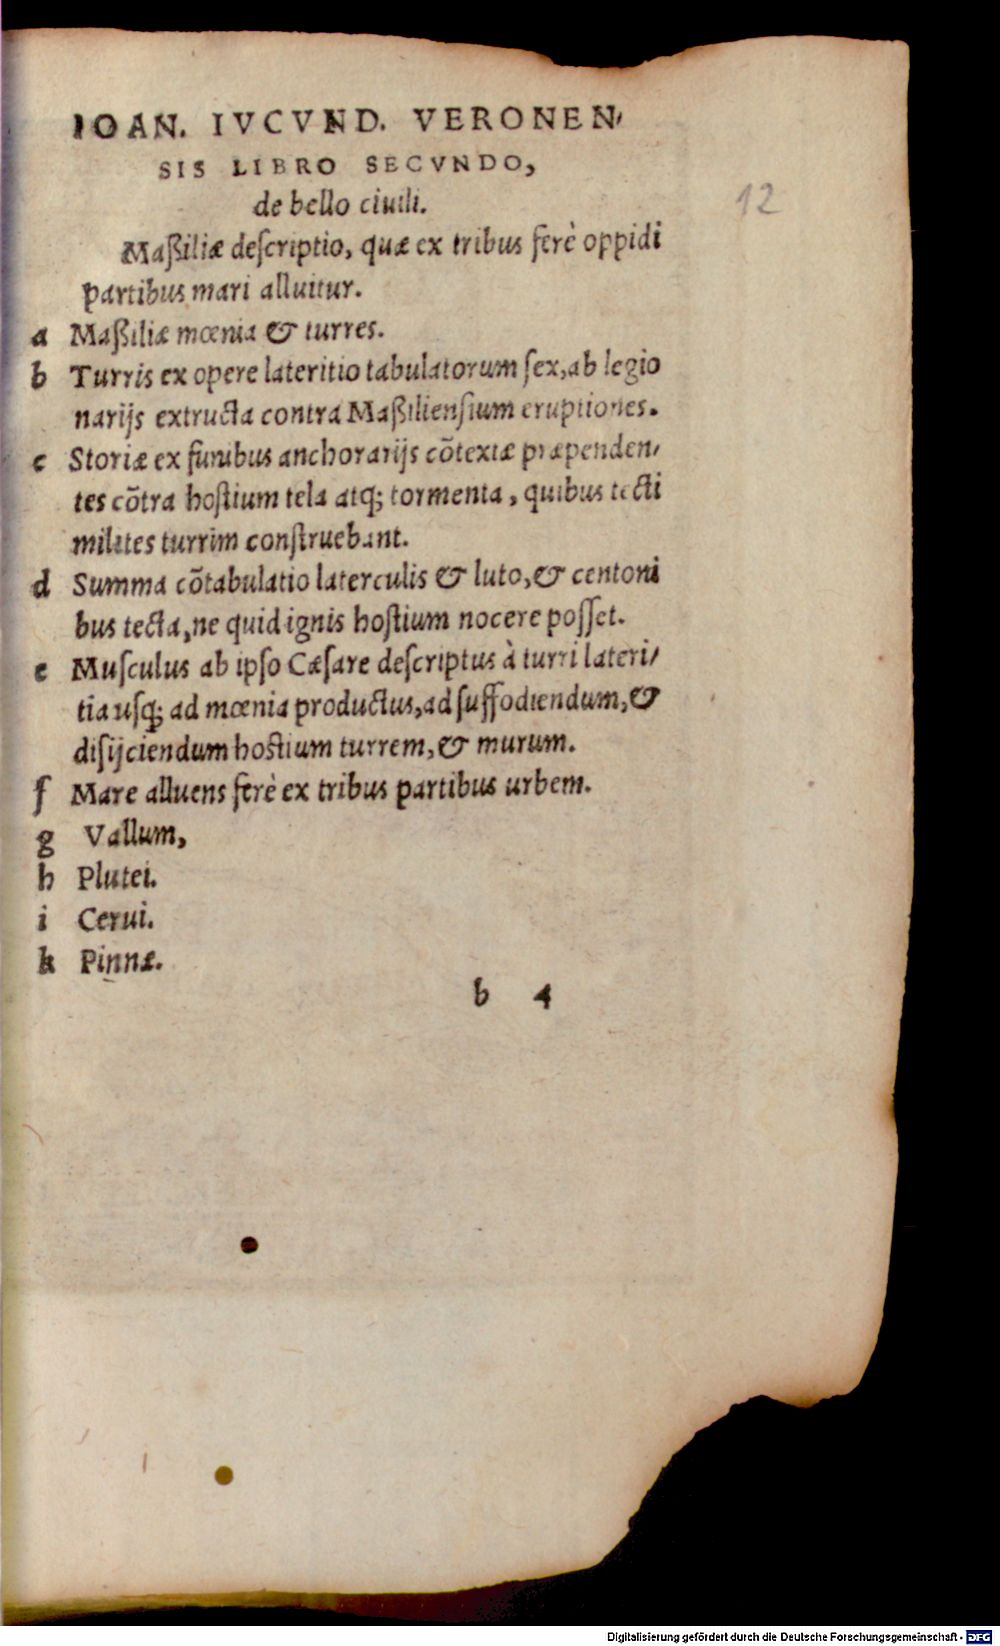 IOAN. IVCVND. VERONEN-
SIS LIBRO SECVNDO,
de bello ciuili.
12
Maßiliæ deſcriptio, quæ ex tribus ferè oppidi
partibus mari alluitur.
a Maßiliæ mœnia & turres.
b Turris ex opere lateritio tabulatorum ſex, ab legio
narijs extructa contra Maßilienſium eruptiones.
c Storiæ ex funibus anchorarijs cõtextæ præpenden-
tes cõtra hoſtium tela atq; tormenta, quibus tecti
milites turrim conſtruebant.
d Summa cõtabulatio laterculis & luto, & centoni
bus tecta, ne quid ignis hoſtium nocere poſſet.
e Muſculus ab ipſo Cæſare deſcriptus à turri lateri-
tia uſq; ad mœnia productus, ad ſuffodiendum, &
diſijciendum hoſtium turrem, & murum.
f Mare alluens ferè ex tribus partibus urbem.
g Vallum,
h Plutei.
i Cerui.
k Pinnæ.
b 4
Digitalisierung gefördert durch die Deutsche Forschungsgemeinschaft - DFG